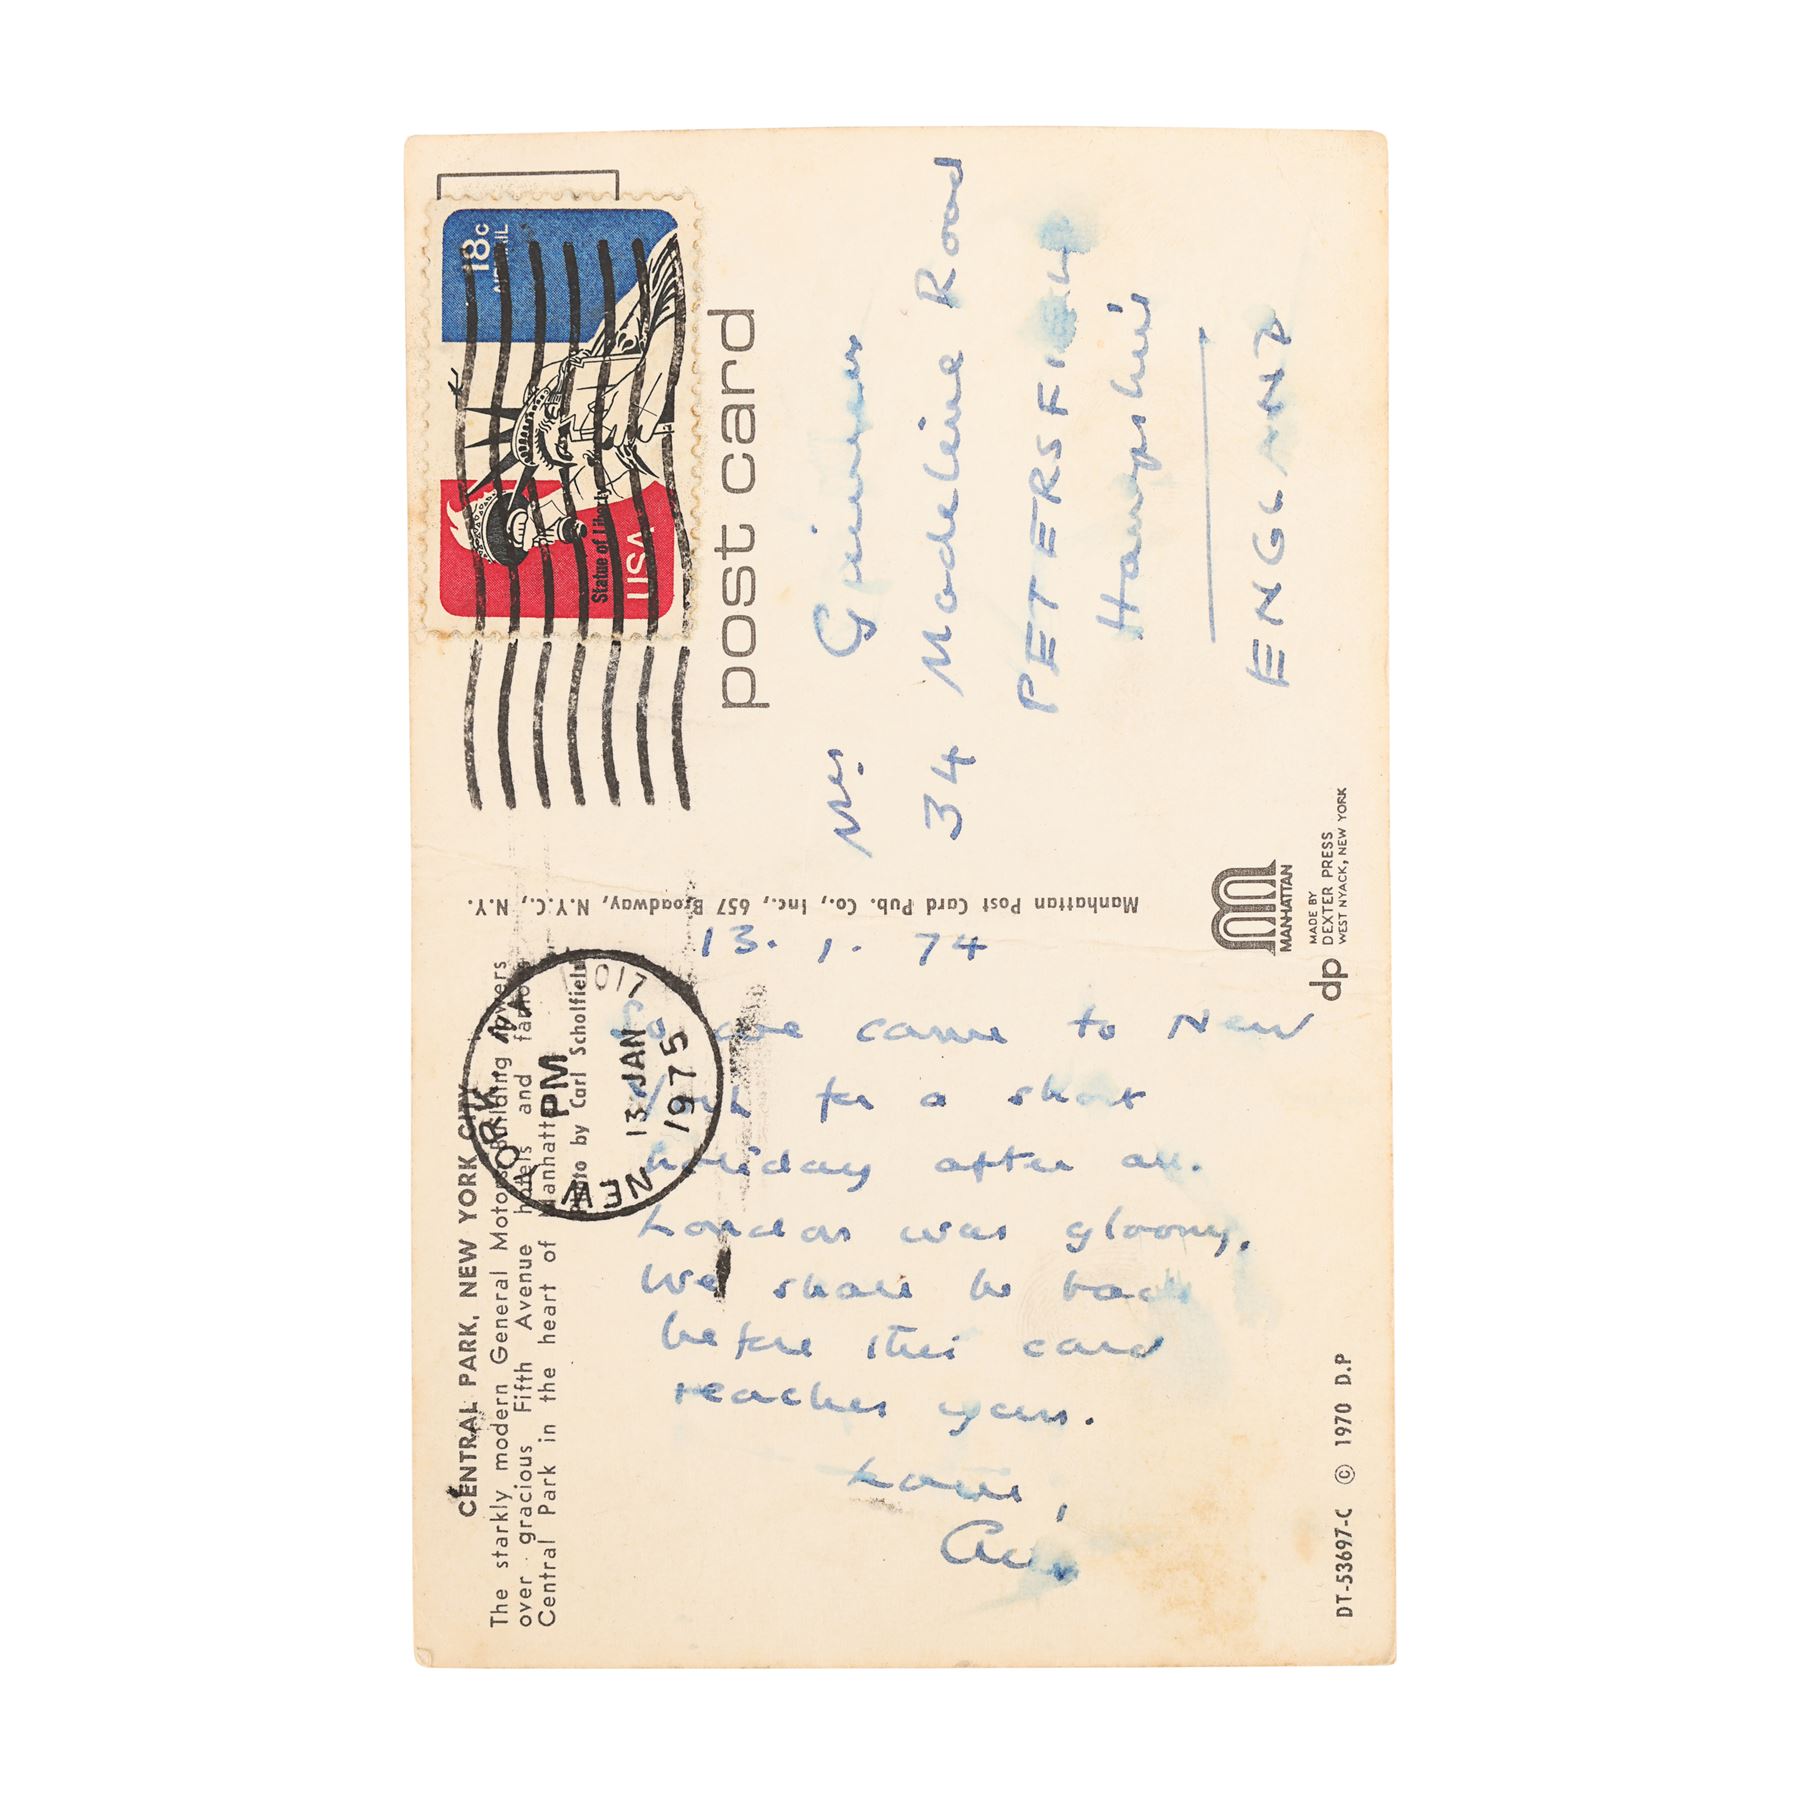 CENTRAL PARK, NEW YORK CITY
The starkly modern General Motors Building towers
over gracious Fifth Avenue hotels and famous
Central Park in the heart of Manhattan.
Photo by Carl Scholfield
NEW YORK, N.Y.
PM
13 JAN
1975
10017
18c
AIRMAIL
Statue of Liberty
USA
post card
Manhattan Post Card Pub. Co., Inc., 657 Broadway, N.Y.C., N.Y.
13. 1. 74
So we came to New
York for a short
holiday after all.
London was gloomy.
We shall be back
before this card
reaches you.
Love,
Mrs.
34 Madeline Road
PETERSFIELD
Hampshire
ENGLAND
MANHATTAN
dp
MADE BY
DEXTER PRESS
WEST NYACK, NEW YORK
DT-53697-C © 1970 D.P